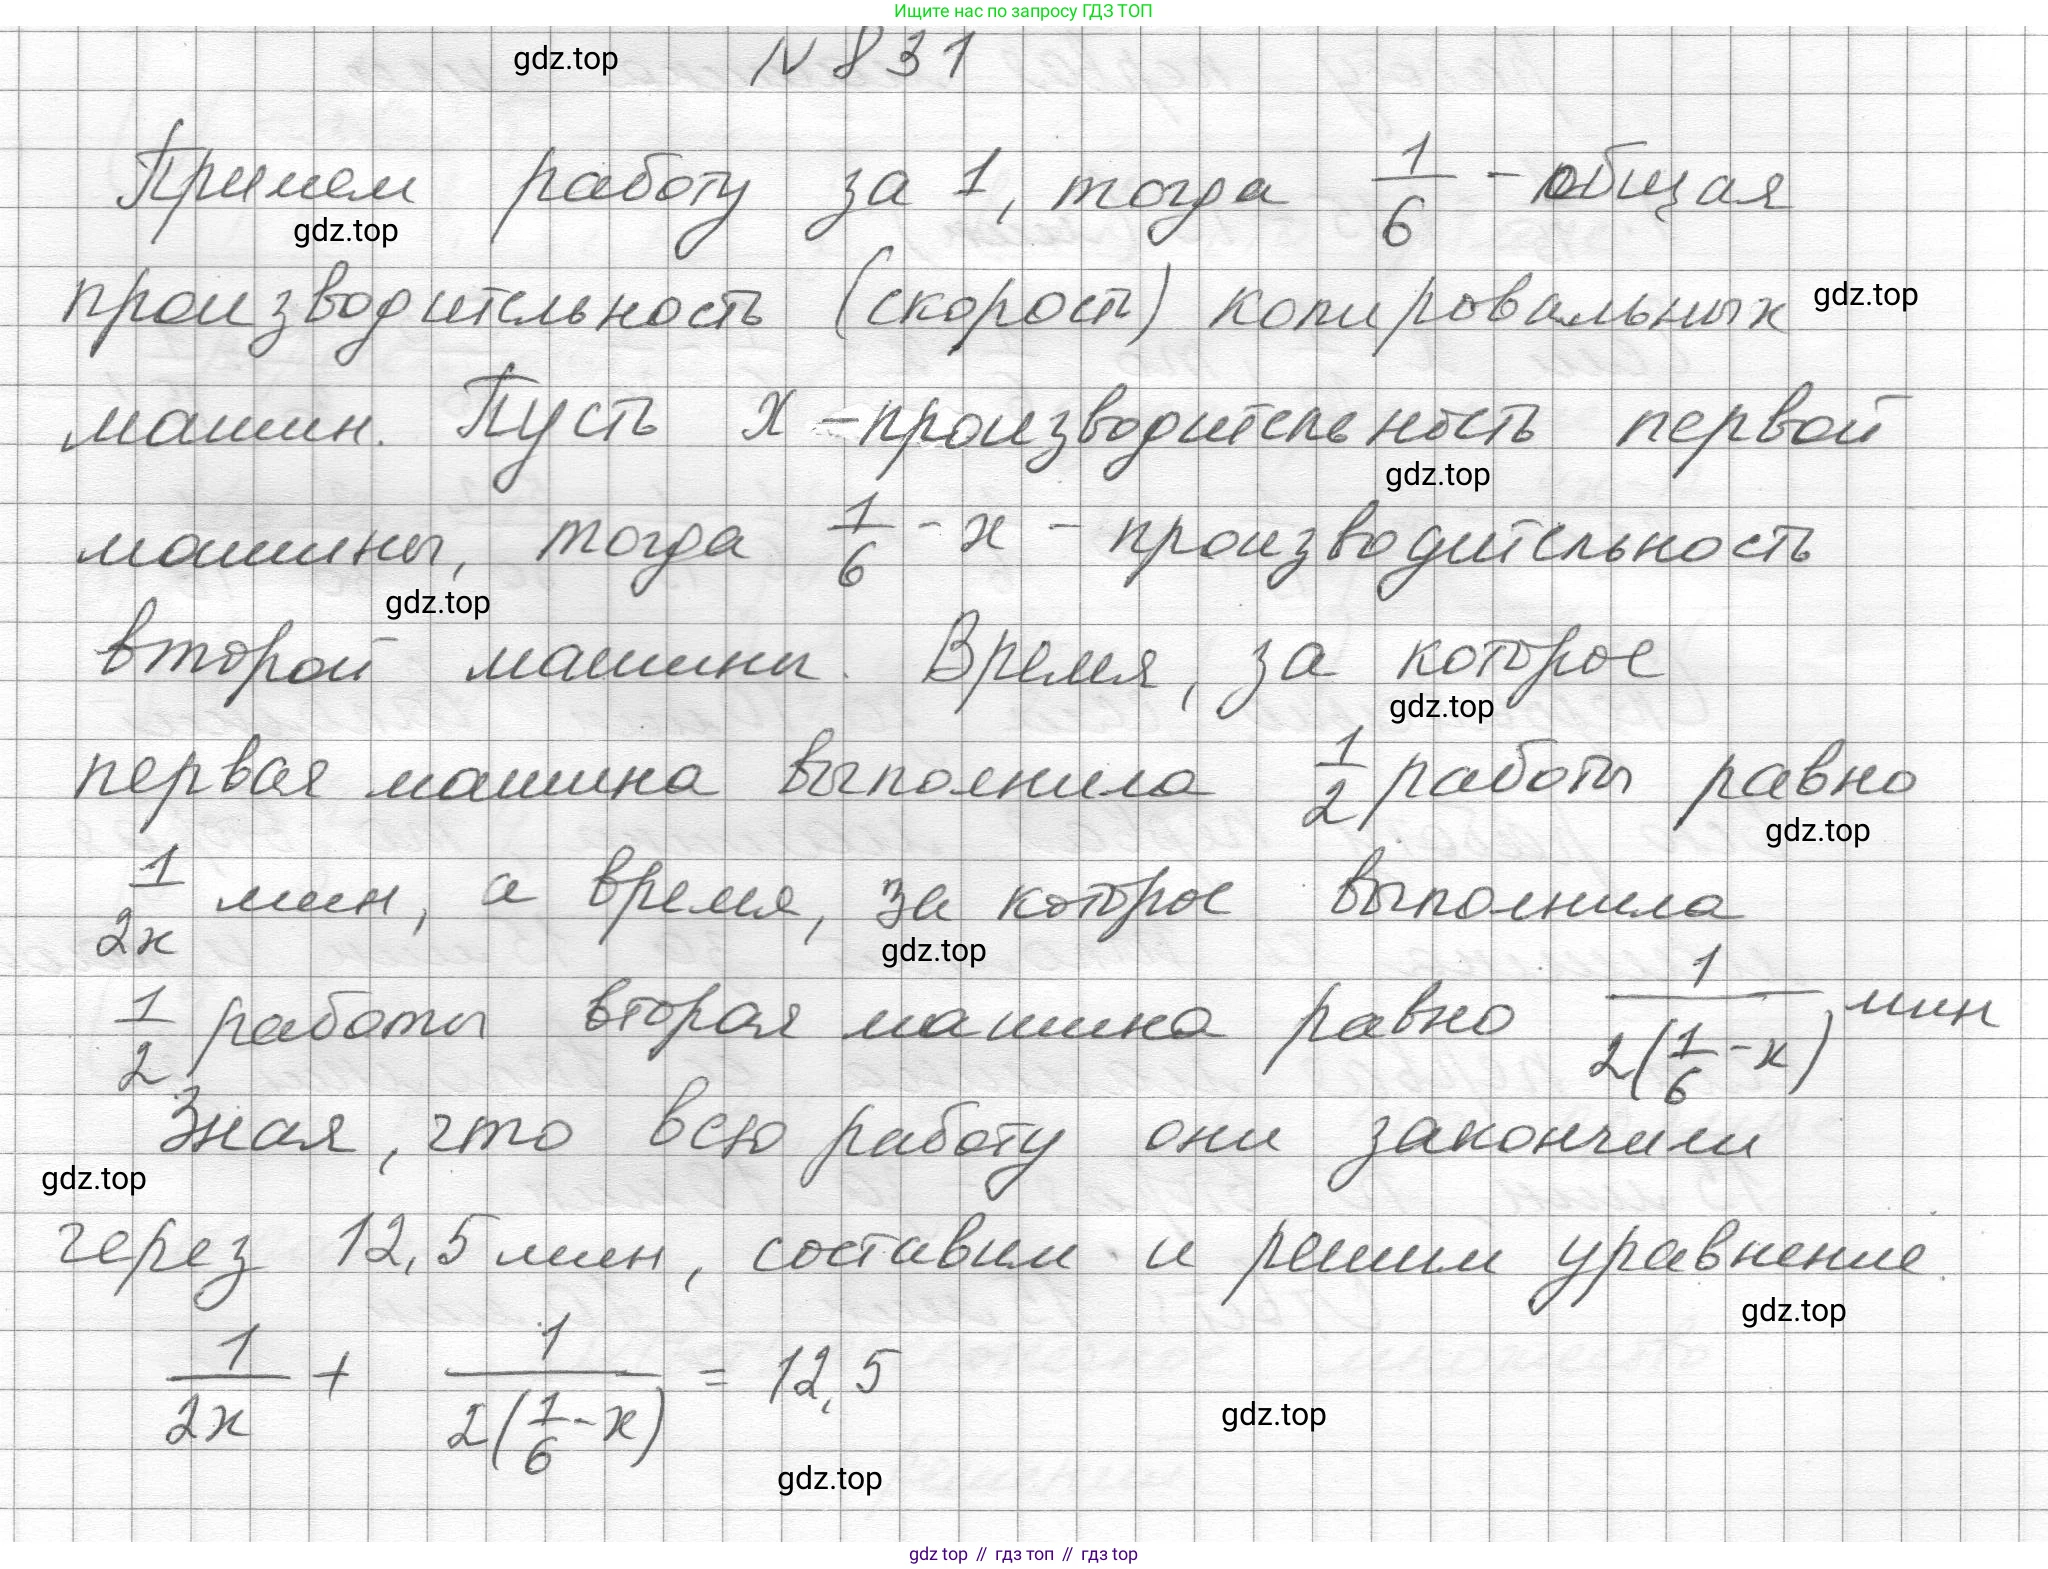 Ищите нас по запросу ГДЗ ТОП
gdz.top N 831
Примем работу за 1, тогда 1/6 - общая
gdz.top
производительность (скорость) копировальных gdz.top
машин. Пусть x - производительность первой
gdz.top
машины, тогда 1/6 - x - производительность
gdz.top
второй машины. Время, за которое
gdz.top
первая машина выполнила 1/2 работы равно
gdz.top
1/2x мин, а время, за которое выполнила
gdz.top
1/2 работы вторая машина равно 1/2(1/6 - x) мин
Зная, что всю работу они закончили
gdz.top
через 12,5 мин, составим и решим уравнение.
gdz.top
1/2x + 1/2(1/6 - x) = 12,5
gdz.top
gdz.top
gdz top // гдз топ // гдз top